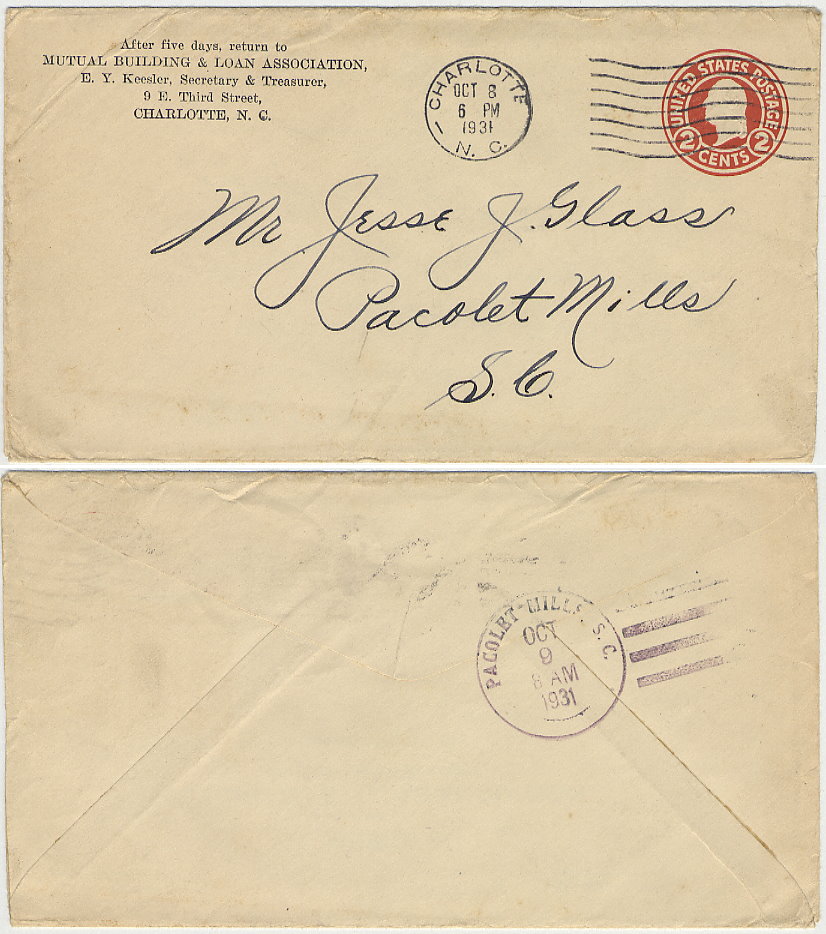 After five days, return to
MUTUAL BUILDING & LOAN ASSOCIATION,
E. Y. Keesler, Secretary & Treasurer,
9 E. Third Street,
CHARLOTTE, N. C.
CHARLOTTE
OCT 8
6 PM
1931
N. C.
1
UNITED STATES POSTAGE
2 CENTS 2
Mr. Jesse J. Glass
Pacolet Mills
S.C.
PACOLET-MILLS, S.C.
OCT
9
8 AM
1931